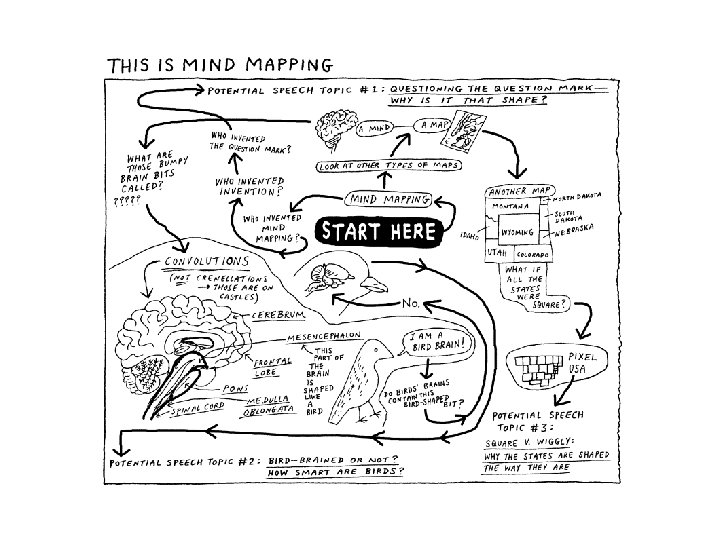 THIS IS MIND MAPPING
POTENTIAL SPEECH TOPIC #1: QUESTIONING THE QUESTION MARK—
WHY IS IT THAT SHAPE?
WHO INVENTED
THE QUESTION MARK?
A MIND
A MAP
WHAT ARE
THOSE BUMPY
BRAIN BITS
CALLED?
?????
LOOK AT OTHER TYPES OF MAPS
WHO INVENTED
INVENTION?
MIND MAPPING
WHO INVENTED
MIND
MAPPING?
START HERE
ANOTHER MAP
MONTANA
NORTH DAKOTA
SOUTH
DAKOTA
IDAHO
WYOMING
NEBRASKA
UTAH
COLORADO
WHAT IF
ALL THE
STATES
WERE
SQUARE?
CONVOLUTIONS
(NOT CRENELLATIONS
→ THOSE ARE ON
CASTLES)
NO.
CEREBRUM
MESENCEPHALON
THIS
PART OF
THE
BRAIN
IS
SHAPED
LIKE
A
BIRD
I AM A
BIRD BRAIN!
FRONTAL
LOBE
PONS
SPINAL CORD
MEDULLA
OBLONGATA
DO BIRDS' BRAINS
CONTAIN THIS
BIRD-SHAPED
BIT?
PIXEL
USA
POTENTIAL SPEECH
TOPIC #3:
SQUARE V. WIGGLY:
WHY THE STATES ARE SHAPED
THE WAY THEY ARE
POTENTIAL SPEECH TOPIC #2: BIRD-BRAINED OR NOT?
HOW SMART ARE BIRDS?